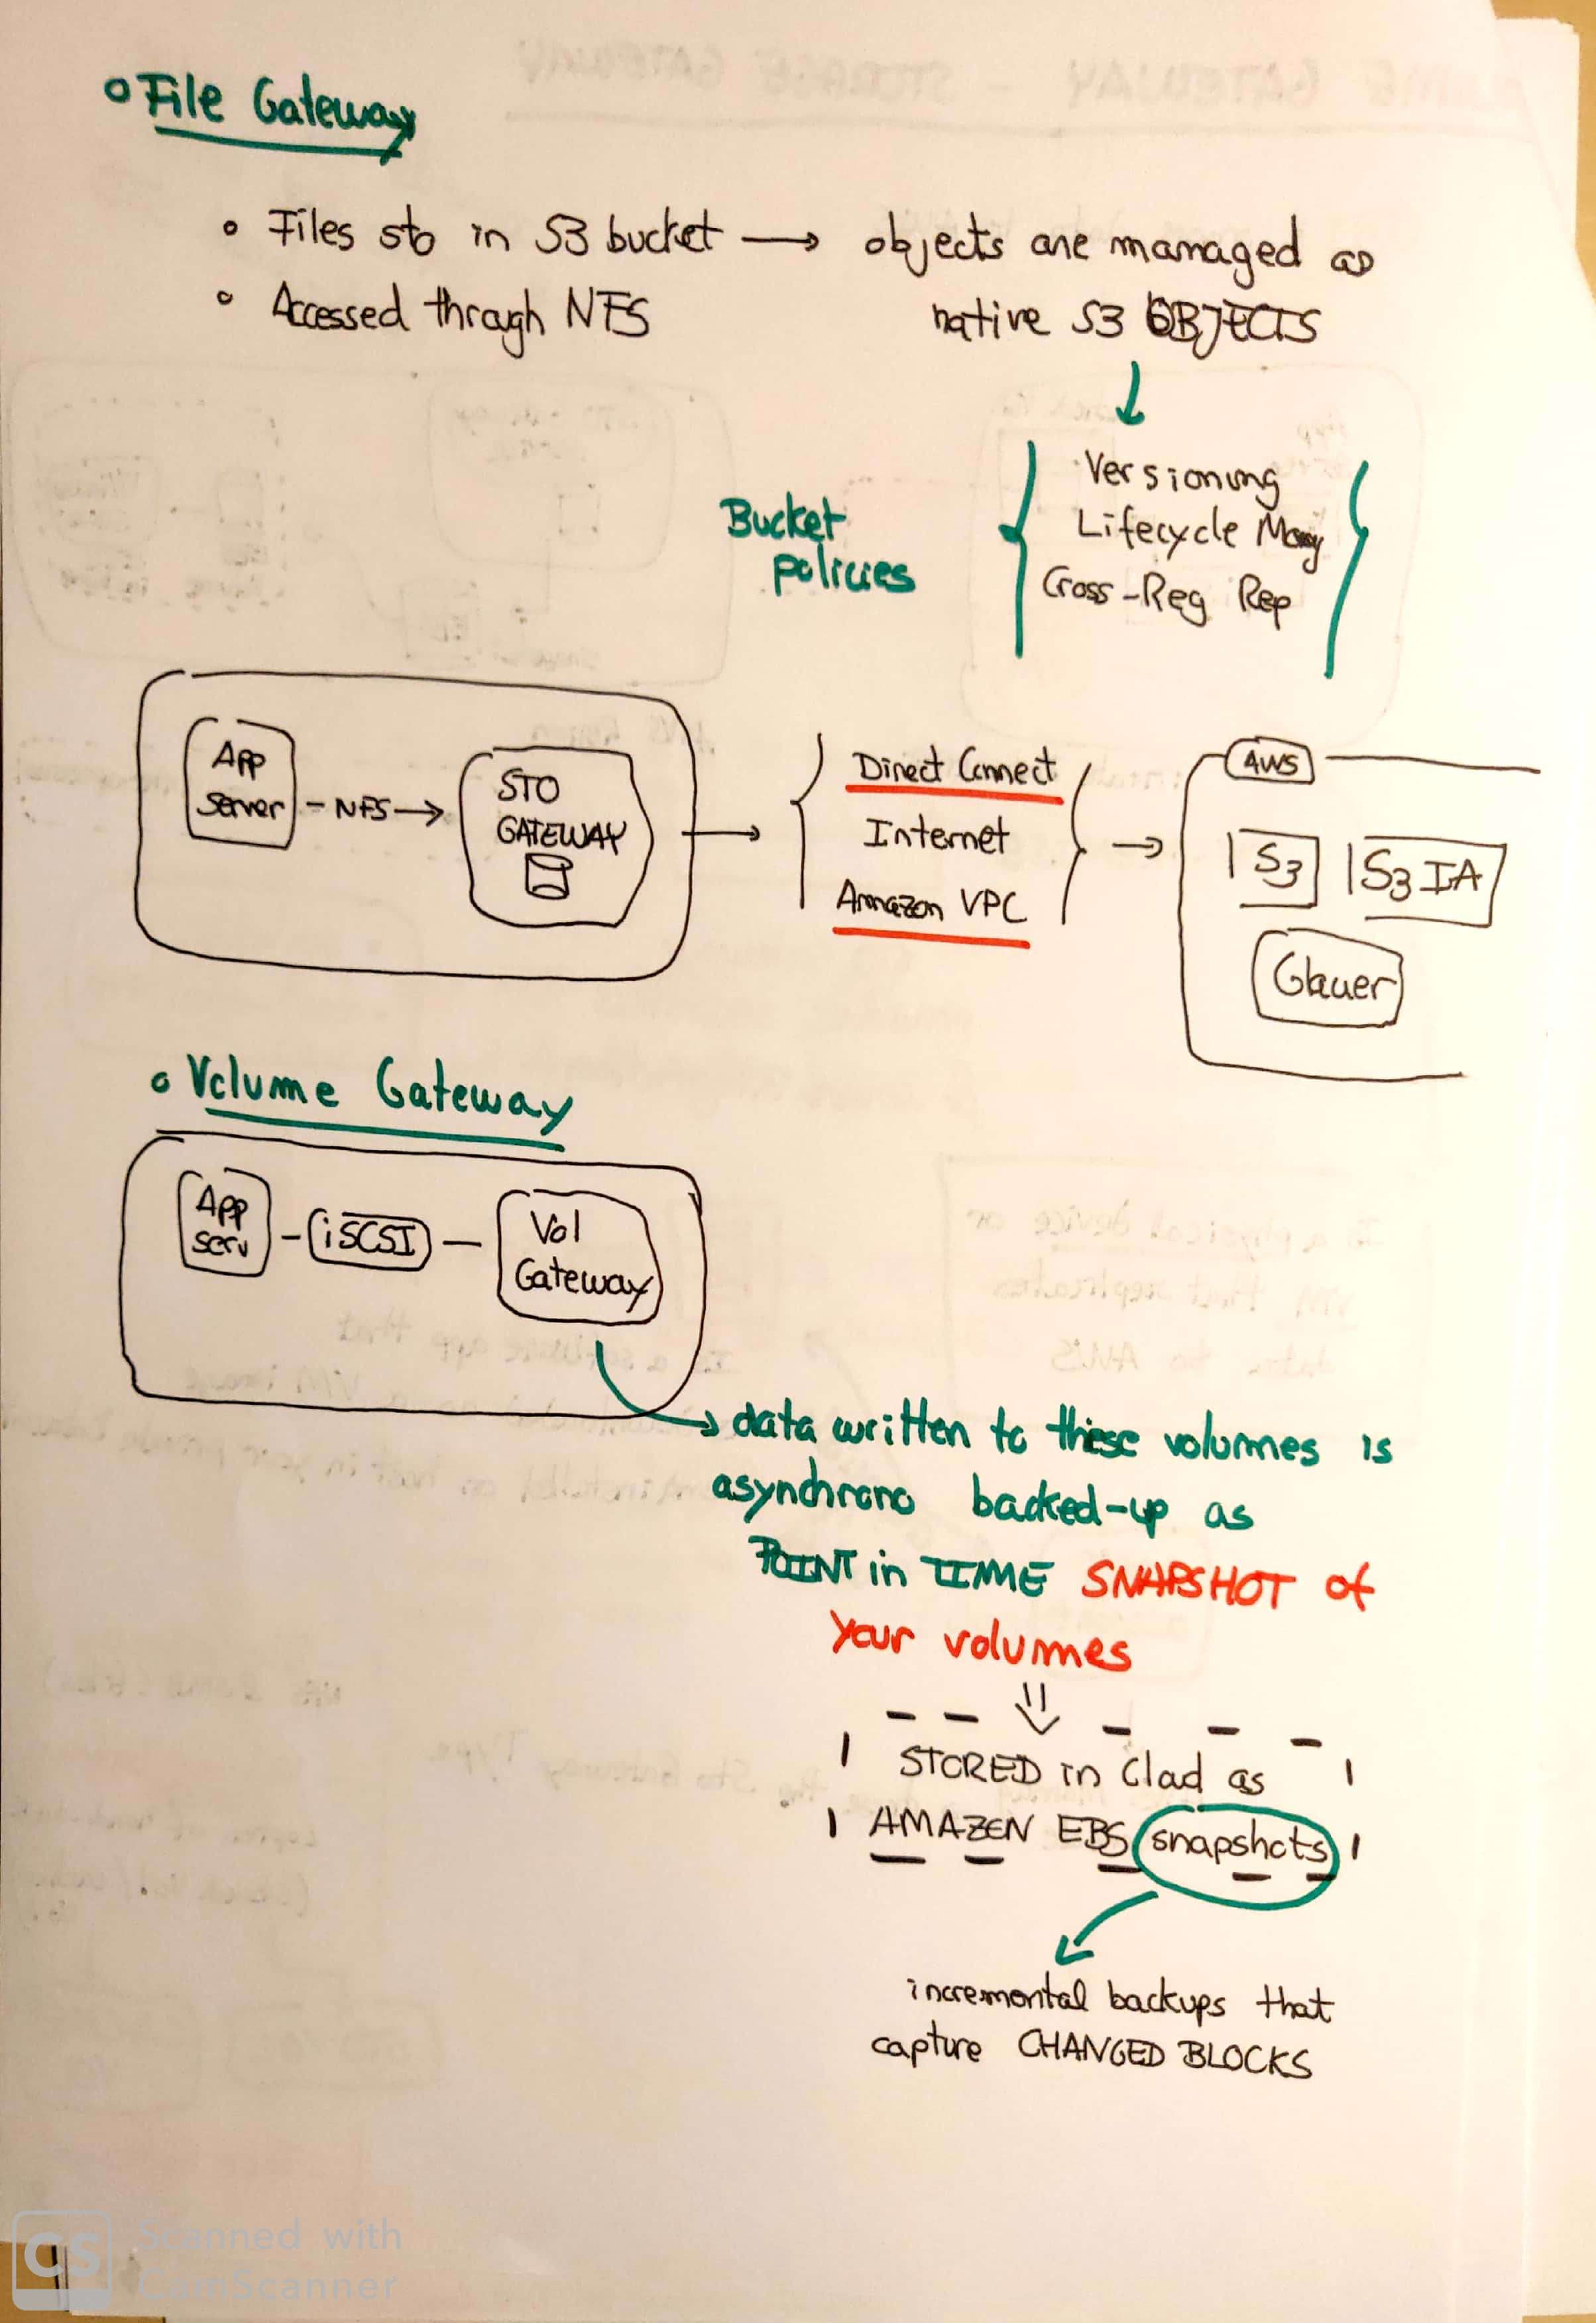 File Gateway
Files sto in S3 bucket → objects are managed as
native S3 OBJECTS
Accessed through NFS
Bucket
policies
Versioning
Lifecycle Manag
Cross-Reg Rep
App
server
- NFS →
STO
GATEWAY
Direct Connect
Internet
Amazon VPC
AWS
S3
S3 IA
Glacier
Volume Gateway
App
serv
iSCSI
Vol
Gateway
→ data written to these volumes is
asynchrono backed-up as
POINT in TIME SNAPSHOT of
your volumes
STORED in Cloud as
AMAZON EBS snapshots
incremental backups that
capture CHANGED BLOCKS
CS Scanned with
CamScanner